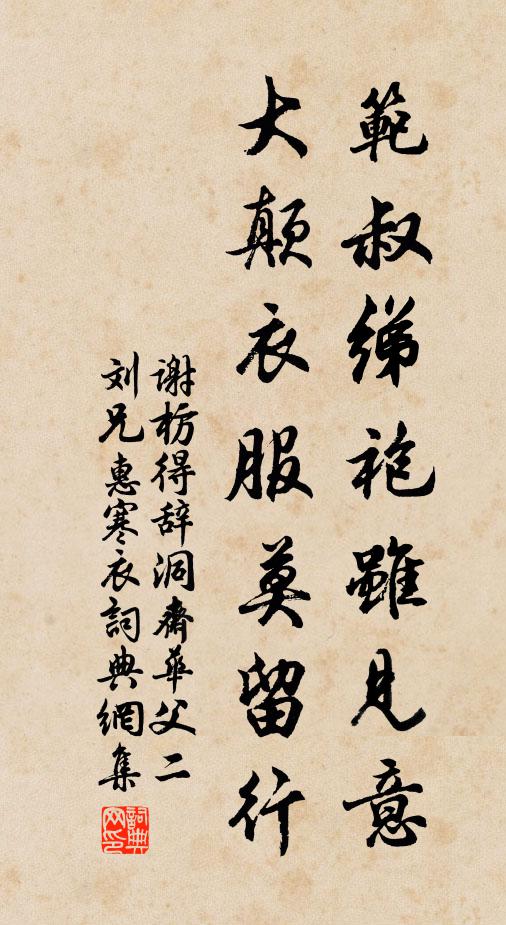 範叔綈袍雖見意
大顛衣服莫留行
谢枋得辞洞齋華父二
刘兄惠寒衣詞典網集
詞典网印